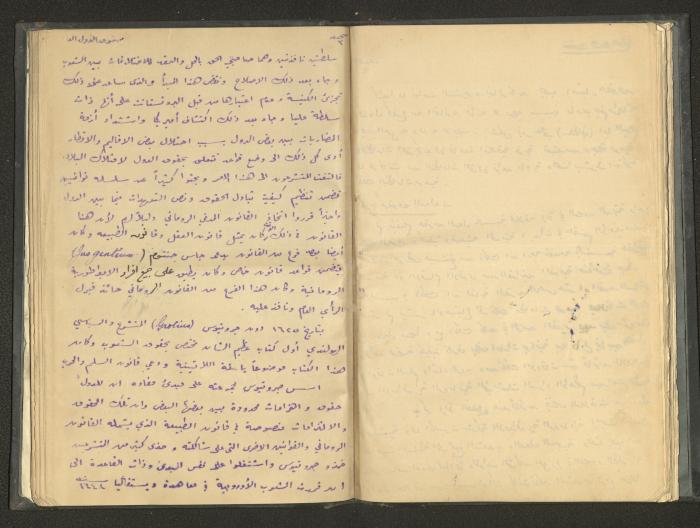 حقوق الدول العا
سلطتين نافذتين وهما صاحبتي الحق بالحل والعقد للاختلافات بين الشعوب
وجاء بعد ذلك الاصلاح ونقض هذا المبدأ والذي ساعد على ذلك
تجزئ الكنيسة وعدم اعتبارها من قبل البروتستانت على أنها ذات
سلطة عليا وجاء بعد ذلك اكتشاف أميركا واشتداد أزمة
المضاربات بين بعض الدول بسبب احتلال بعض الاقاليم والاقطار
أدى كل ذلك الى وضع قواعد تتعلق بحقوق الدول لامتلاك البلاد
فالتفت المتشرعون الى هذا الامر وبحثوا كثيراً عن سلسلة قوانين
تضمن تنظيم كيفية تبادل الحقوق ونص التعهدات فيما بين الدول
واخيراً قرروا اتخاذ القانون المدني الروماني دليلاً لهم لأن هذا
القانون في ذلك الزمن كان يمثل قانون العقل وقانون الطبيعة وكان
أيضا يوجد فرع من القانون يدعى جاس جنتيوم (Jus gentium)
يتضمن قواعد قانون خاص وكان يطبق على جميع افراد الامبراطورية
الرومانية وكان هذا الفرع من القانون الروماني حائز قبول
الرأي العام ونافذ عليه .
بتاريخ ١٦٢٥ دون جروتيوس (Grotius) المتشرع والسياسي
الهولندي أول كتاب عظيم الشأن مختص بحقوق الشعوب وكان
هذا الكتاب موضوعاً باللغة اللاتينية ودعي قانون السلم والحرب
اسس جروتيوس مجموعته على مبدئ مفاده ان للدول
حقوق والتزامات محدودة بين بعضها البعض وان تلك الحقوق
والالتزامات منصوصة في قانون الطبيعة الذي يشمله القانون
الروماني والقوانين الاخرى التي على شاكلته وحذى كثير من المتشرعين
حذو جروتيوس واشتغلوا على نفس المبدئ وذات القاعدة الى
ان قررت الشعوب الأوروبية في معاهدة ويستفاليا سنة ١٦٤٨